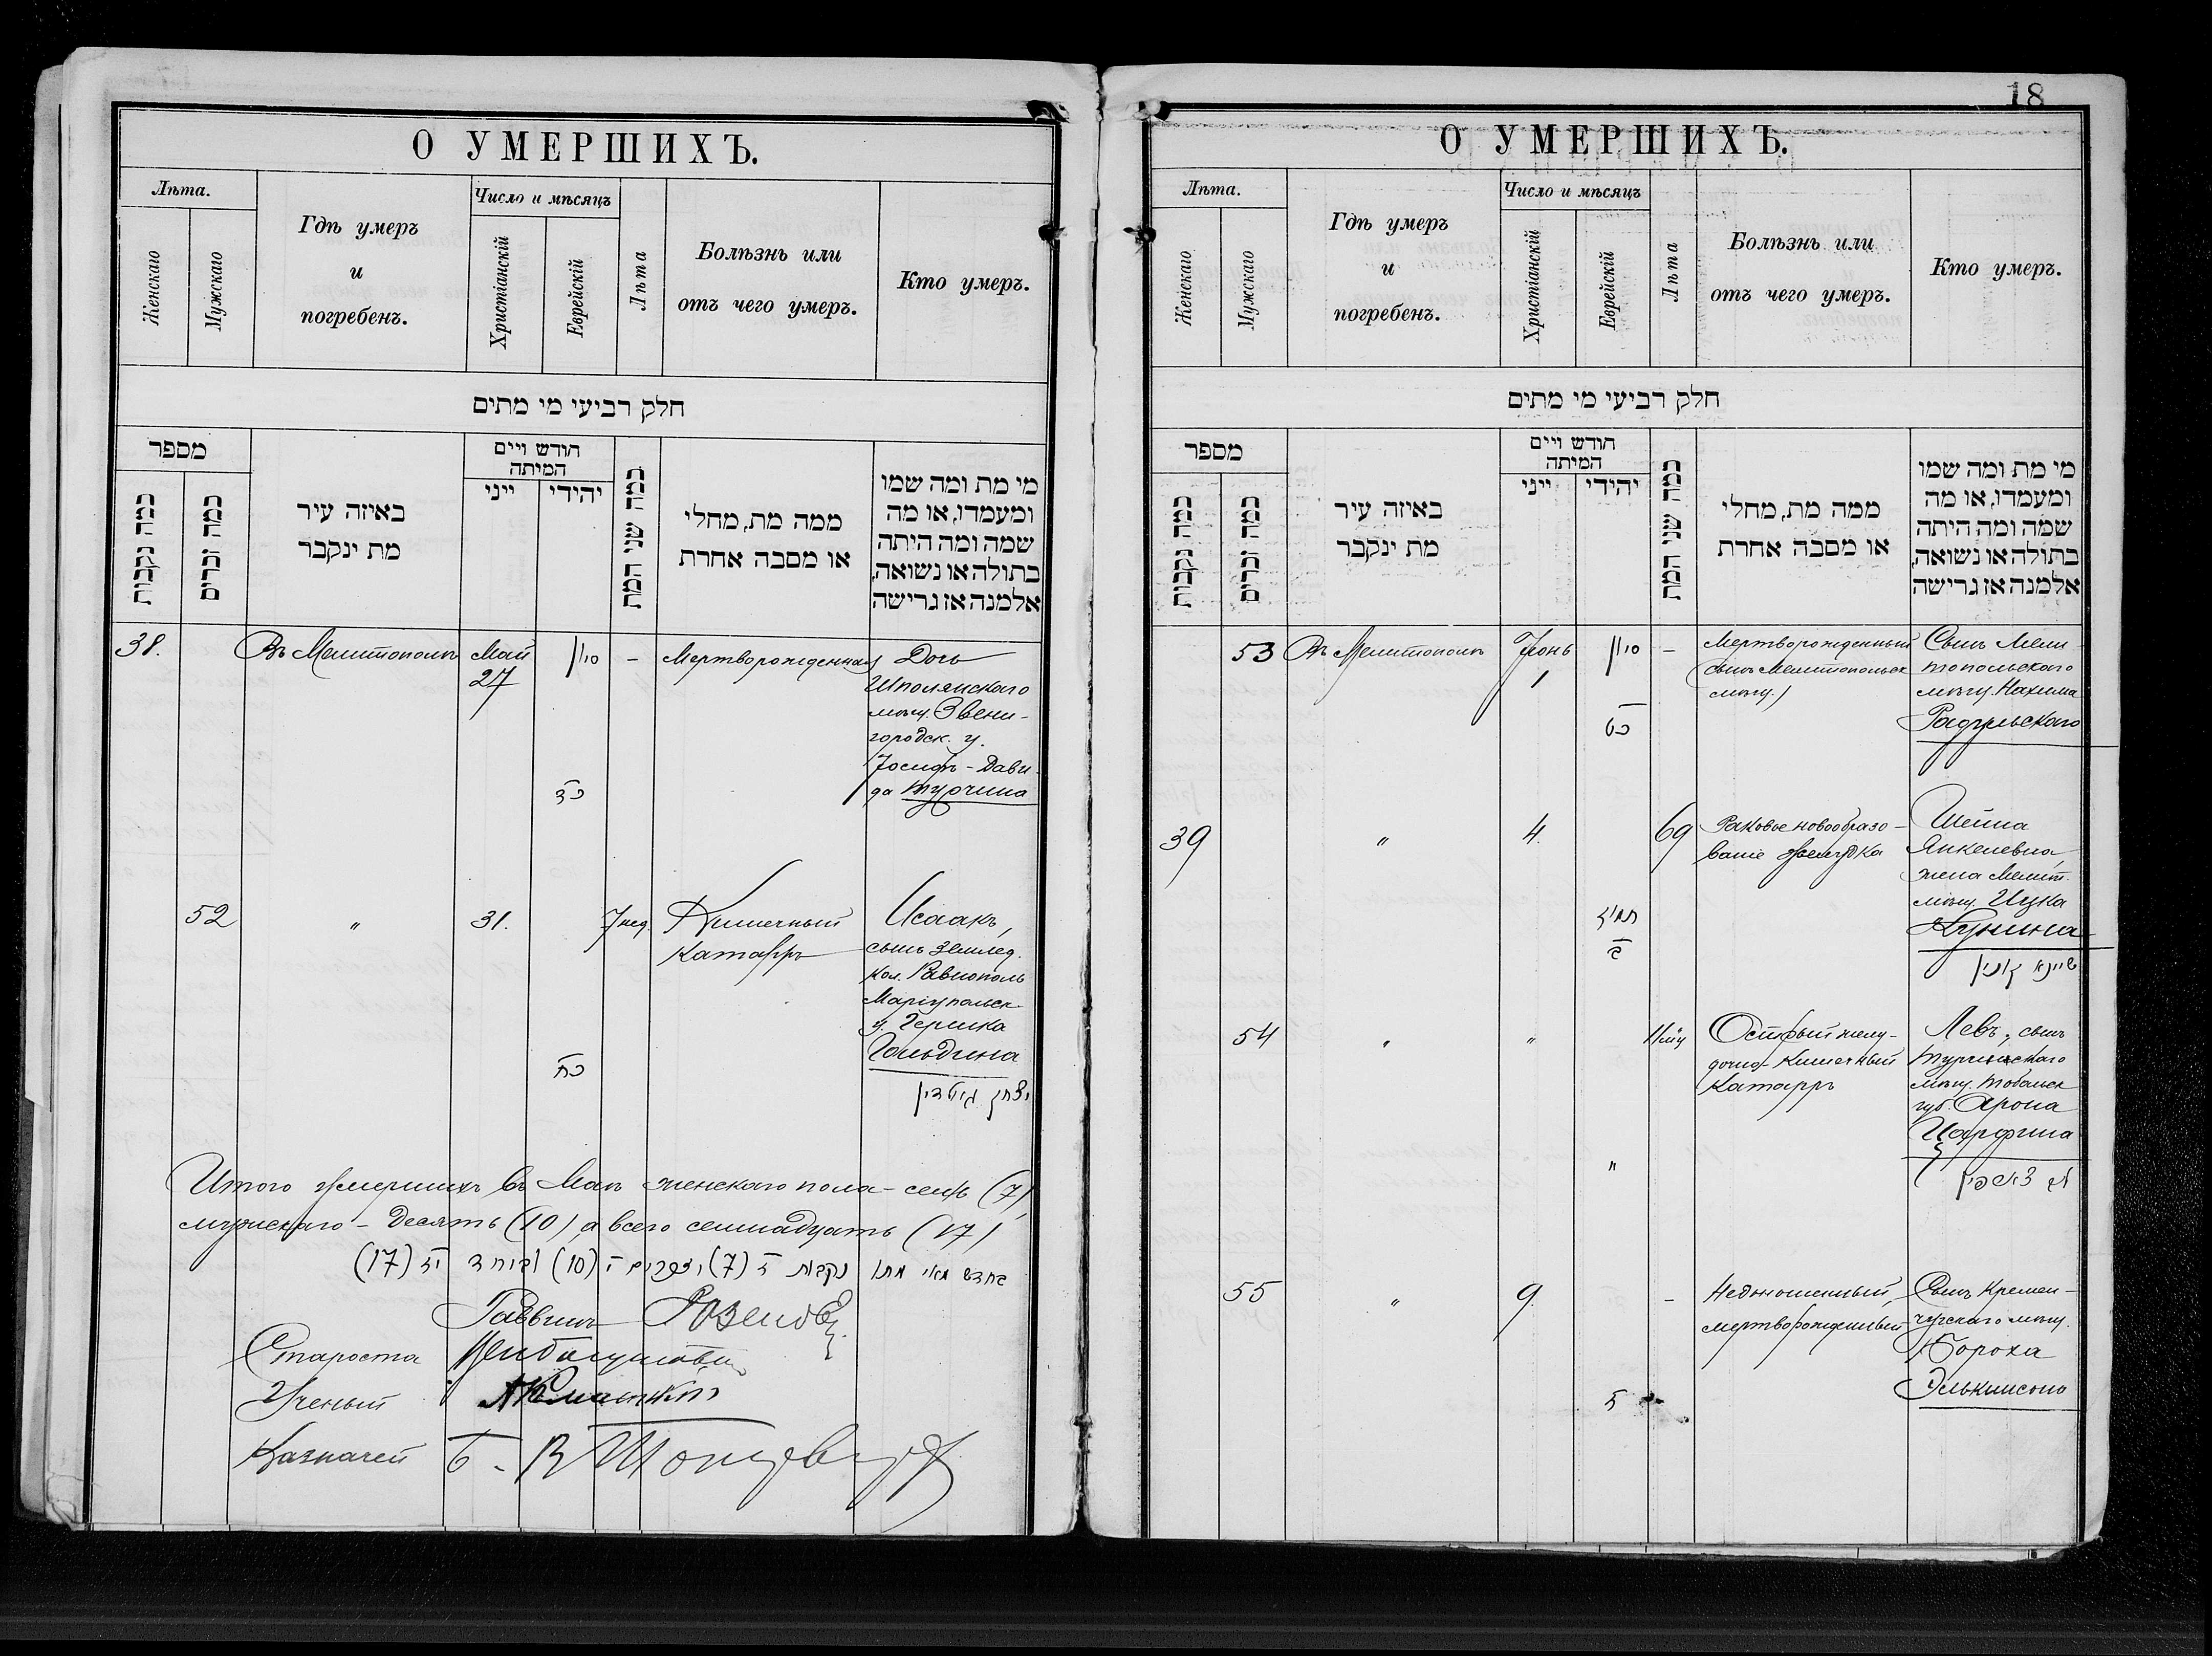 О УМЕРШИХЪ.
Лѣта.
Женскаго
Мужскаго
Гдѣ умеръ
и
погребенъ.
Число и мѣсяцъ
Христіанскій
Еврейскій
Лѣта
Болѣзнь или
отъ чего умеръ.
Кто умеръ.
חלק רביעי מי מתים
מספר
כמה נקבות
כמה זכרים
באיזה עיר
מת ינקבר
חודש ויים
המיתה
ייני
יהידי
כמה שני המת
ממה מת, מחלי
או מסבה אחרת
מי מת ומה שמו
ומעמדו, או מה
שמה ומה היתה
בתולה או נשואה,
אלמנה אז גרישה
38.
Въ Мелитополѣ
Май
27
סיון
כד
-
Мертворожденная
Дочь
Шполянскаго
мѣщ. Звени-
городск. у.
Іосифъ-Дави-
да Турчина
52
"
31.
כח
7 нед.
Кишечный
катарръ
Исаакъ,
сынъ землед.
кол. Равнополь
Маріупольск.
у. Гершка
Гольдина
יצחק גולדין
Итого умершихъ въ Маѣ женскаго пола - семь (7),
мужскаго - десять (10), а всего семнадцать (17)
בחדש מאי מתו נקבות ז (7) וזכרים י (10) וביחד יז (17)
Раввинъ
Староста
Ученый
Казначей
18
О УМЕРШИХЪ.
Лѣта.
Женскаго
Мужскаго
Гдѣ умеръ
и
погребенъ.
Число и мѣсяцъ
Христіанскій
Еврейскій
Лѣта
Болѣзнь или
отъ чего умеръ.
Кто умеръ.
חלק רביעי מי מתים
מספר
כמה נקבות
כמה זכרים
באיזה עיר
מת ינקבר
חודש ויים
המיתה
ייני
יהידי
כמה שני המת
ממה מת, מחלי
או מסבה אחרת
מי מת ומה שמו
ומעמדו, או מה
שמה ומה היתה
בתולה או נשואה,
אלמנה אז גרישה
53
Въ Мелитополѣ
Іюнь
1
סיון
כט
-
Мертворожденный
(сынъ Мелитопольск
мѣщ.)
Сынъ Мели-
топольскаго
мѣщ. Нахима
Радульскаго
39
"
4.
תמוז
ב
69
Раковое новообразо-
ваніе желудка
Шейна
Янкелевна,
жена Мелит.
мѣщ. Ицка
Кунина
שיינא קונין
54
"
"
"
Острый желу-
дочно-кишечный
катарръ
Левъ, сынъ
Туринскаго
мѣщ. Тобольск
губ. Арона
Царфина
לב צארפין
55
"
9.
ז
-
Недоношенный,
мертворожденный
Сынъ Кремен-
чугскаго мѣщ.
Бороха
Элькинсона